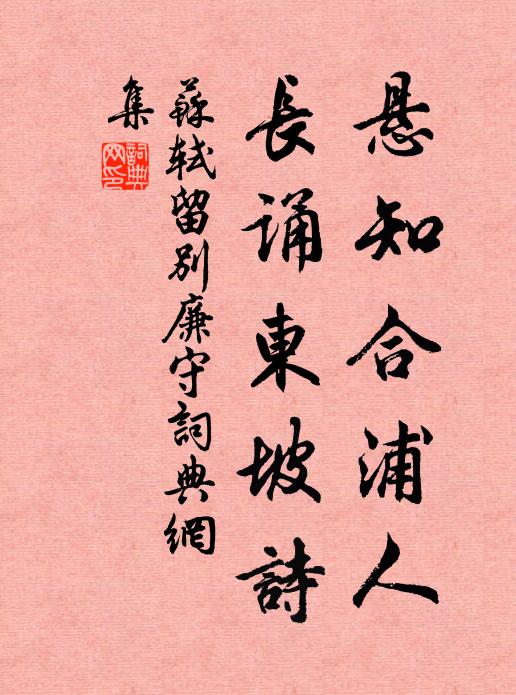 悬知合浦人
長诵東坡詩
蘇軾留别廉守詞典網
集
詞典
网印